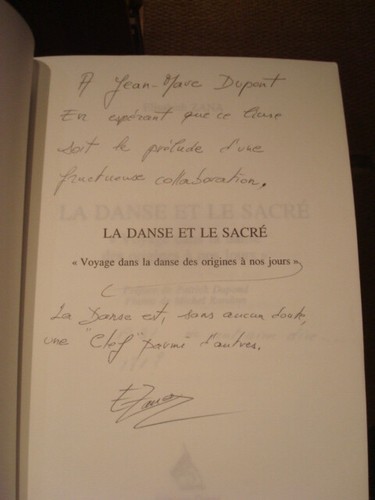 A Jean-Marc Dupont
En espérant que ce livre
soit le prélude d'une
fructueuse collaboration.
LA DANSE ET LE SACRÉ
« Voyage dans la danse des origines à nos jours »
La Danse est, sans aucun doute,
une "Clef" parmi d'autres.